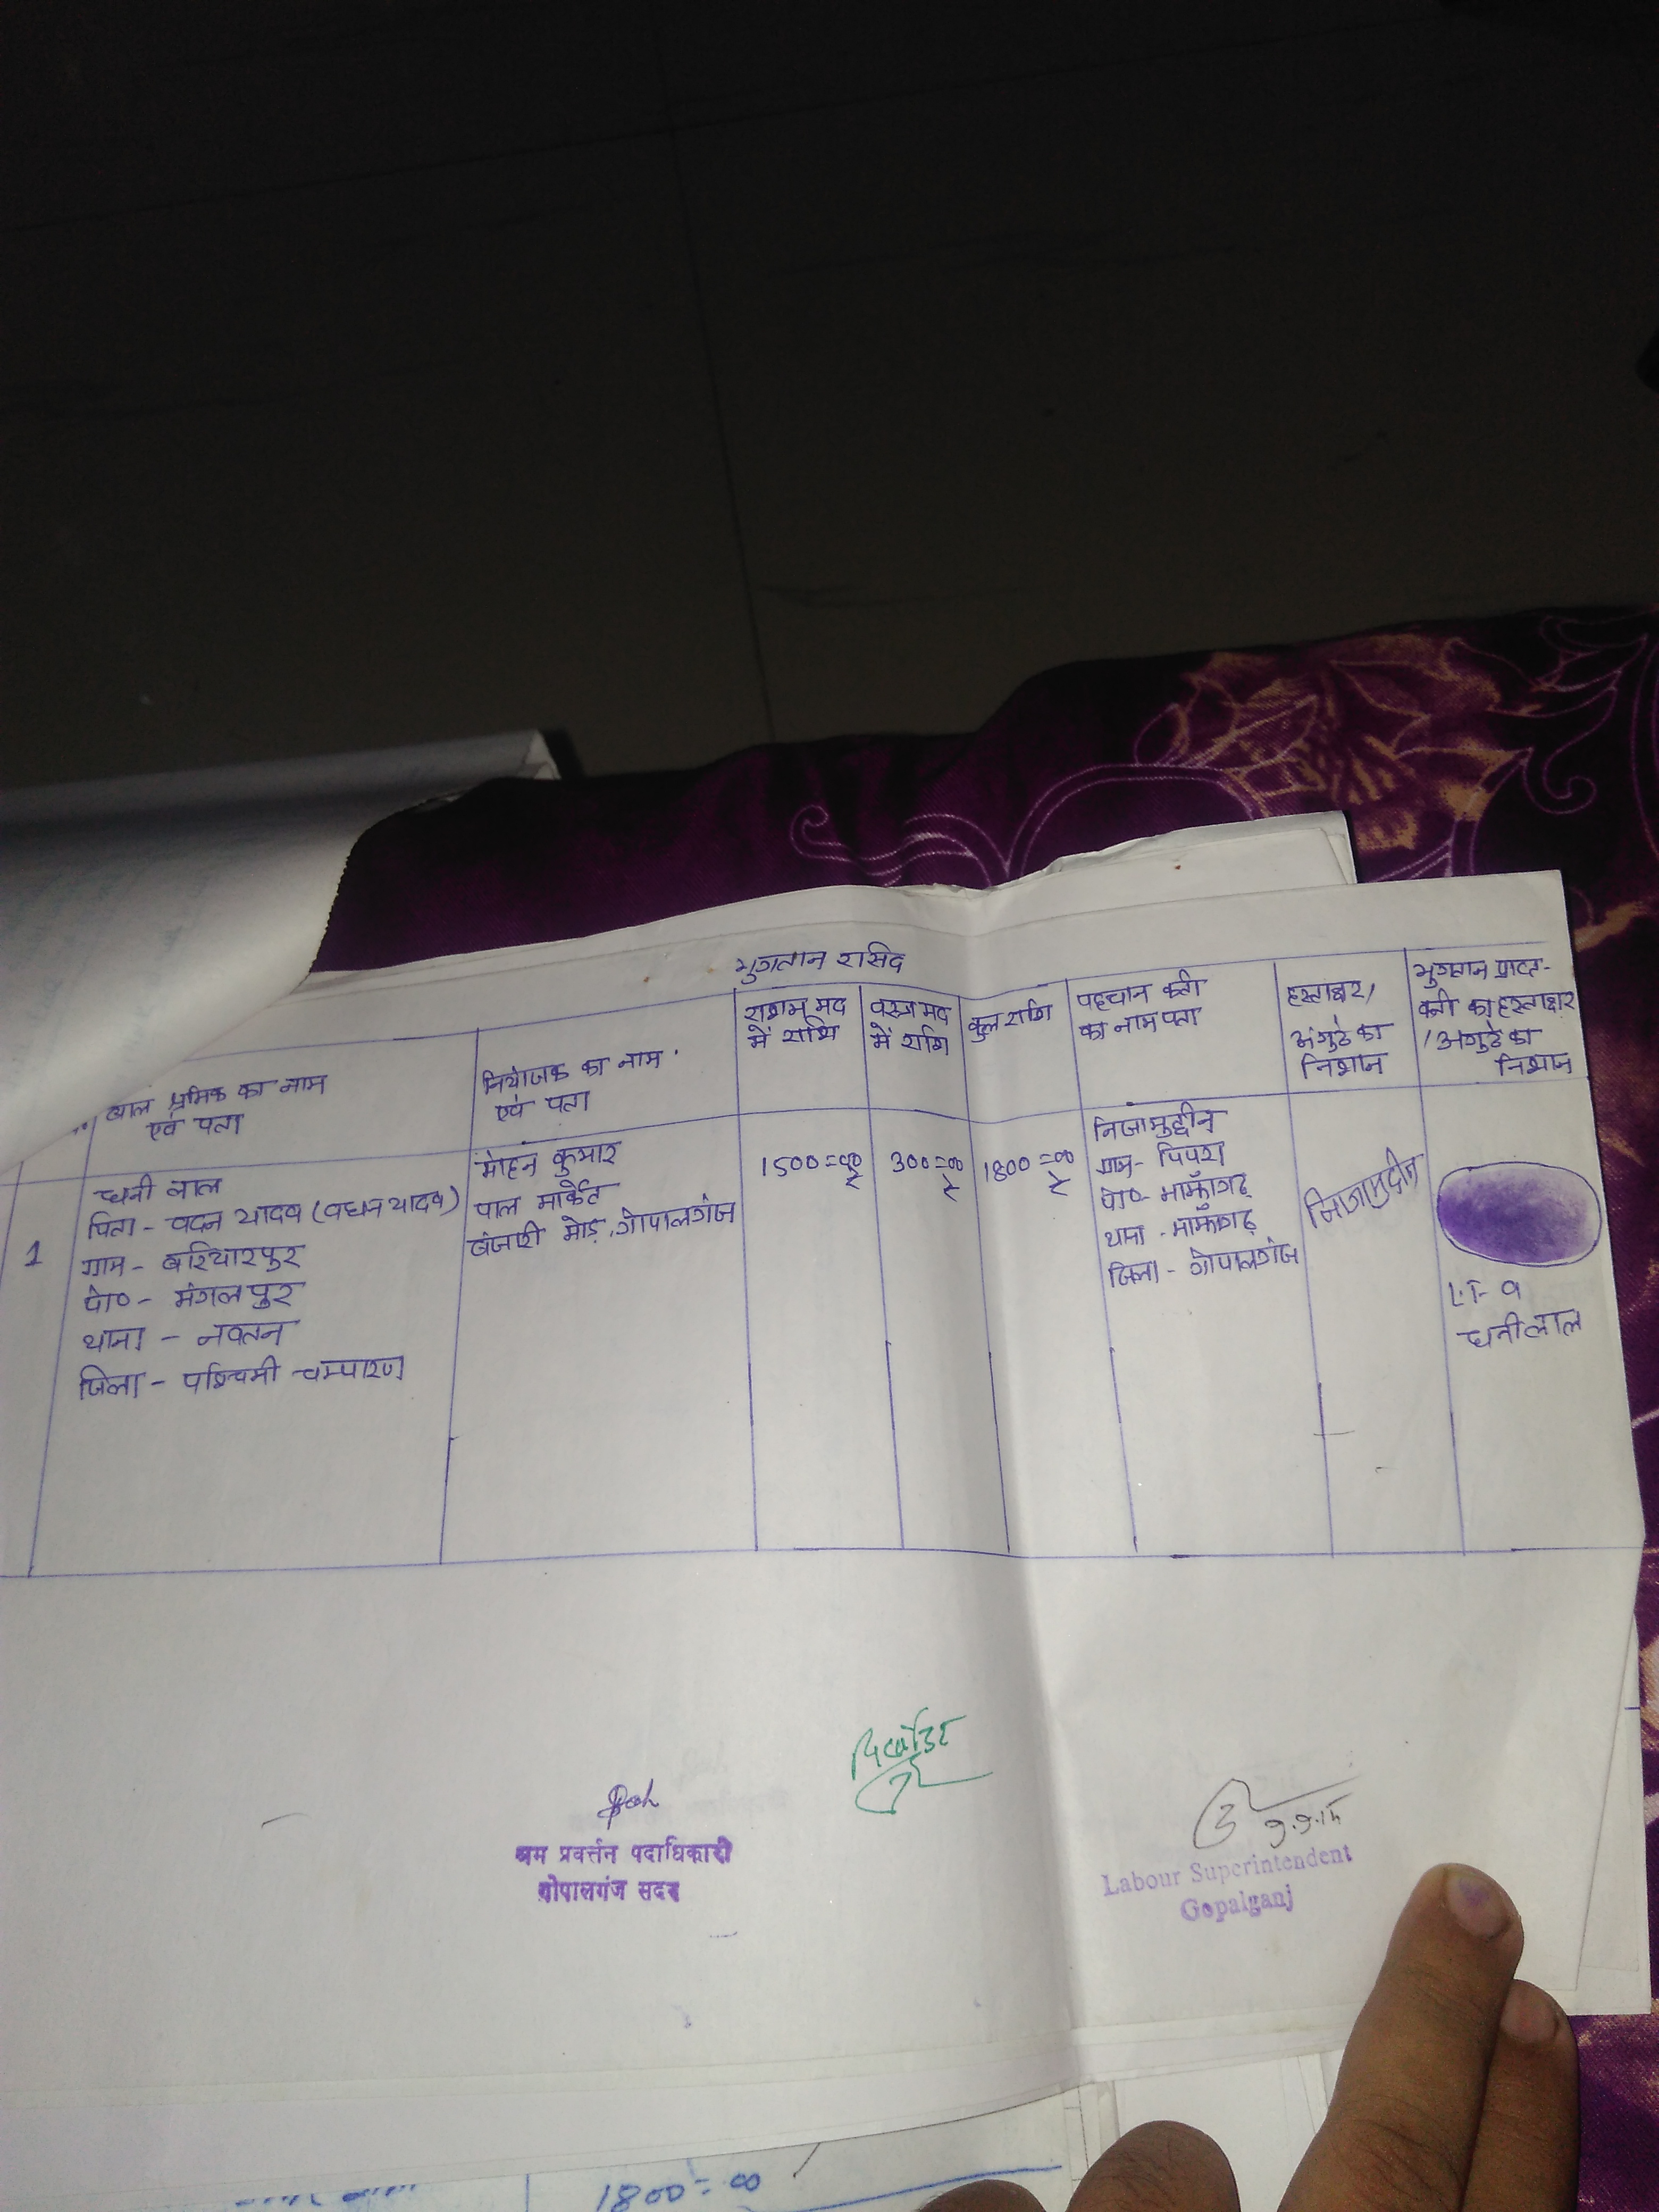 भुगतान रासिद
बाल श्रमिक का नाम
एवं पता
नियोजक का नाम
एवं पता
राशन मद
में राशि
वस्त्र मद
में राशि
कुल राशि
पहचान कर्ता
का नाम पता
हस्ताक्षर/
अंगुठे का
निशान
भुगतान प्राप्त-
कर्ता का हस्ताक्षर
/अंगुठे का
निशान
1
धनी लाल
पिता - वदन यादव (वधन यादव)
ग्राम - बरियारपुर
पो० - मंगलपुर
थाना - नवतन
जिला - पश्चिमी चम्पारण
मोहन कुमार
पाल मार्केट
बंजारी मोड़, गोपालगंज
1500=00
300=00
1800=00
निजामुद्दीन
ग्राम - पिपरा
पो०- माझाँगढ़
थाना - माझाँगढ़
जिला - गोपालगंज
निजामुद्दीन
धनीलाल
श्रम प्रवर्त्तन पदाधिकारी
गोपालगंज सदर
9.9.15
Labour Superintendent
Gopalganj
1800=00